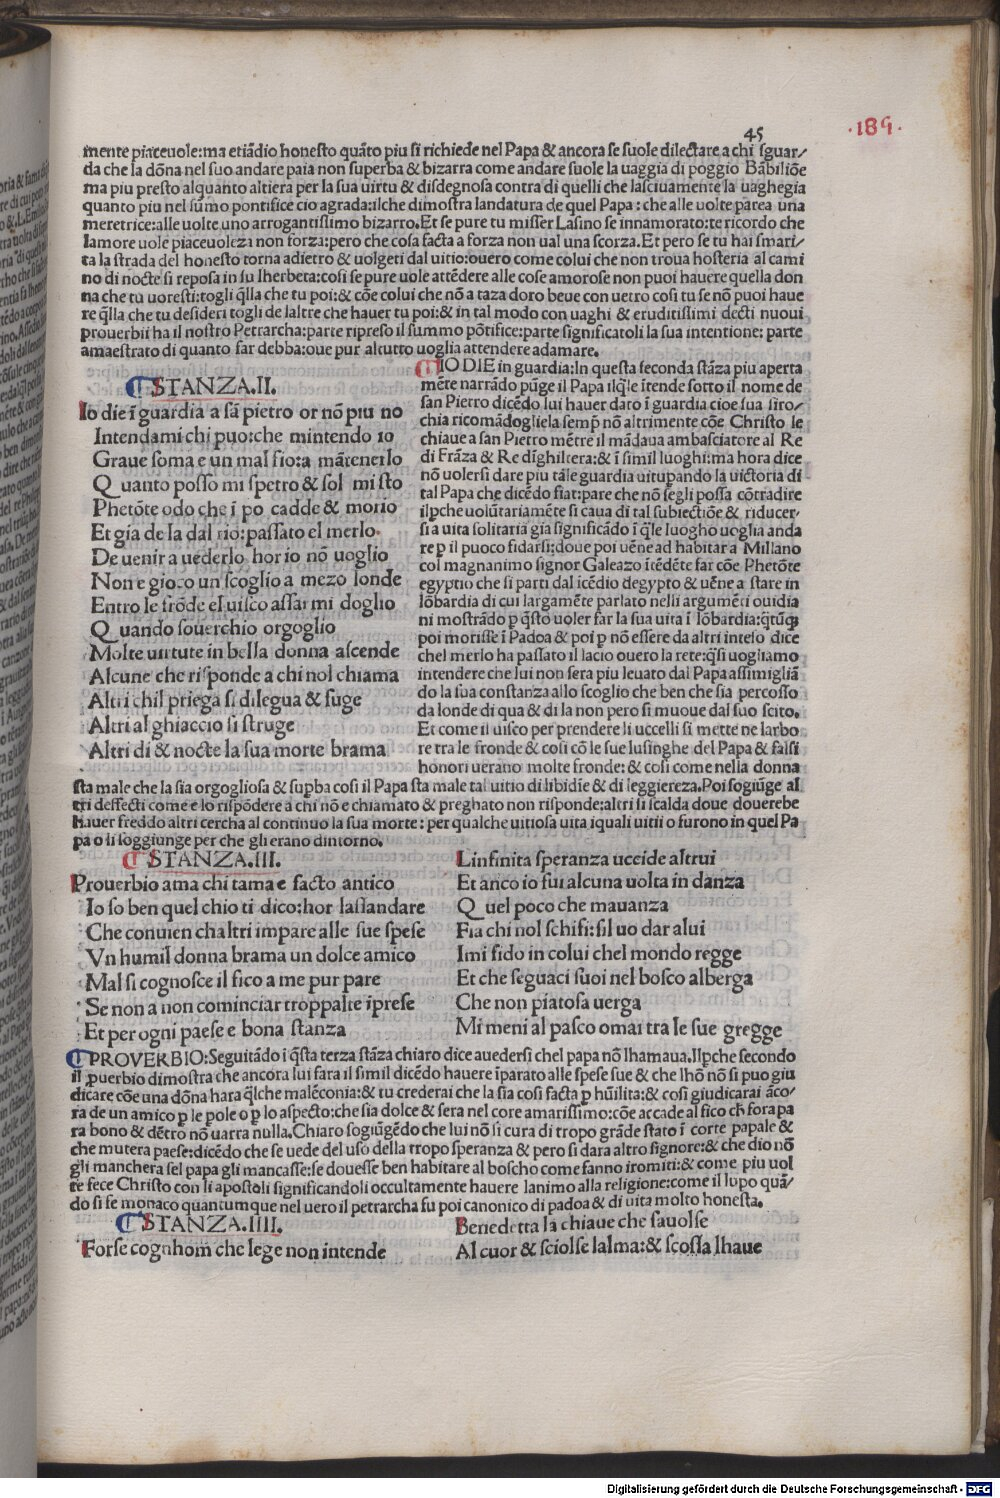 45
·189·
mente piaceuole:ma etiãdio honesto quãto piu si richiede nel Papa & ancora se suole dilectare a chi sguar/
da che la dõna nel suo andare paia non superba & bizarra come andare suole la uaggia di poggio Bãbiliõe
ma piu presto alquanto altiera per la sua uirtu & disdegnosa contra di quelli che lasciuamente la uaghegia
quanto piu nel sũmo pontifice cio agrada:ilche dimostra landatura de quel Papa : che alle uolte parea una
meretrice:alle uolte uno arrogantissimo bizarro.Et se pure tu misser Lasino se innamorato:te ricordo che
lamore uole piaceuoleza non forza:pero che cosa facta a forza non ual una scorza.Et pero se tu hai smari/
ta la strada del honesto torna adietro & uolgeti dal uitio:ouero come colui che non troua hosteria al cami
no di nocte si reposa in su lherbeta:cosi se pure uole attẽdere alle cose amorose non puoi hauere quella don
na che tu uoresti:togli q̃lla che tu poi:& cõe colui che nõ a taza doro beue con uetro cosi tu se nõ puoi haue
re q̃lla che tu desideri togli de laltre che hauer tu poi:& in tal modo con uaghi & eruditissimi decti nuoui
prouerbii ha il nostro Petrarcha:parte ripreso il summo põtifice:parte significatoli la sua intentione: parte
amaestrato di quanto far debba:oue pur altutto uoglia attendere adamare.
STANZA.II.
Io die ĩ guardia a sã pietro or nõ piu no
Intendami chi puo:che mintendo io
Graue soma e un mal fio:a mãtenerlo
Quanto posso mi spetro & sol mi sto
Phetõte odo che ĩ po cadde & morio
Et gia de la dal rio:passato el merlo
De uenir a uederlo hor io nõ uoglio
Non e gioco un scoglio a mezo londe
Entro le frõde el uisco assai mi doglio
Quando souerchio orgoglio
Molte uirtute in bella donna ascende
Alcune che risponde a chi nol chiama
Altri chil priega si dilegua & fuge
Altri al ghiaccio si struge
Altri di & nocte la sua morte brama
IO DIE in guardia:In questa seconda stãza piu aperta
mẽte narrãdo pũge il Papa ilq̃le ĩtende sotto il nome de
san Pietro dicẽdo lui hauer dato ĩ guardia cioe sua siro/
chia ricomãdogliela semp̃ nõ altrimente cõe Christo le
chiaue a san Pietro mẽtre il mãdaua ambasciatore al Re
di Frãza & Re dĩghiltera:& ĩ simil luoghi:ma hora dice
nõ uolersi dare piu tãle guardia uitupando la uictoria di
tal Papa che dicẽdo fiat:pare che nõ segli possa cõtradire
ilpche uolũtariamẽte si caua di tal subiectiõe & riducer/
si a uita solitaria gia significãdo ĩ q̃le luogho uoglia anda
re p il puoco fidarsi:doue poi uẽne ad habitar a Millano
col magnanimo signor Galeazo ĩtẽdẽte far cõe Phetõte
egyptio che si parti dal icẽdio degypto & uẽne a stare in
lõbardia di cui largamẽte parlato nelli argumẽti ouidia
ni mostrãdo p q̃sto uoler far la sua uita ĩ lõbardia:q̃tũq
poi morisse ĩ Padoa & poi p nõ essere da altri inteso dice
chel merlo ha passato il lacio ouero la rete:q̃si uogliamo
intendere che lui non sera piu leuato dal Papa assimigliã
do la sua constanza allo scoglio che ben che sia percosso
da londe di qua & di la non pero si muoue dal suo scito.
Et come il uisco per prendere li uccelli si mette ne larbo
re tra le fronde & cosi cõ le sue lusinghe del Papa & falsi
honori uerano molte fronde: & cosi come nella donna
sta male che la sia orgogliosa & supba cosi il Papa sta male tal uitio di libidie & di leggiereza.Poi sogiũge al
tri deffecti come e lo rispõdere a chi nõ e chiamato & preghato non risponde:altri si scalda doue douerebe
hauer freddo altri cercha al continuo la sua morte: per qualche uitiosa uita iquali uitii o furono in quel Pa
pa o li soggiunge per che gli erano dintorno.
STANZA.III.
Prouerbio ama chi tama e facto antico
Io so ben quel chio ti dico:hor lassandare
Che conuien chaltri impare alle sue spese
Vn humil donna brama un dolce amico
Mal si cognosce il fico a me pur pare
Se non a non cominciar troppalte ĩprese
Et per ogni paese e bona stanza
Linfinita speranza uccide altrui
Et anco io fui alcuna uolta in danza
Quel poco che mauanza
Fia chi nol schifi:sil uo dar alui
Imi fido in colui chel mondo regge
Et che seguaci suoi nel bosco alberga
Che non piatosa uerga
Mi meni al pasco omai tra le sue gregge
PROVERBIO:Seguitãdo ĩ q̃sta terza stãza chiaro dice auedersi chel papa nõ lhamaua.Ilpche secondo
il puerbio dimostra che ancora lui fara il simil dicẽdo hauere ĩparato alle spese sue & che lhõ nõ si puo giu
dicare cõe una dõna hara q̃lche malẽconia:& tu crederai che la sia cosi facta p hũilita:& cosi giudicarai ãco/
ra de un amico p le pole o p lo aspecto:che sia dolce & sera nel core amarissimo:cõe accade al fico ch̃ fora pa
ra bono & dẽtro nõ uarra nulla.Chiaro sogiũgẽdo che lui nõ si cura di tropo grãde stato ĩ corte papale &
che mutera paese:dicẽdo che se uede del uso della tropo speranza & pero si dara altro signore:& che dio nõ
gli manchera sel papa gli mancasse:se douesse ben habitare al boscho come fanno iromiti:& come piu uol
te fece Christo con li apostoli significandoli occultamente hauere lanimo alla religione:come il lupo quã/
do si fe monaco quantumque nel uero il petrarcha fu poi canonico di padoa & di uita molto honesta.
STANZA.IIII.
Forse cognhom che lege non intende
Benedetta la chiaue che sauolse
Al cuor & sciolse lalma:& scossa lhaue
Digitalisierung gefördert durch die Deutsche Forschungsgemeinschaft · DFG